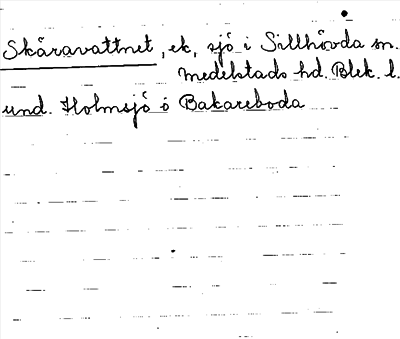 Skåravattnet, ek, sjö i Sillhövda sn.
Medelstads hd. Blek. l.
und. Holmsjö o Bakareboda